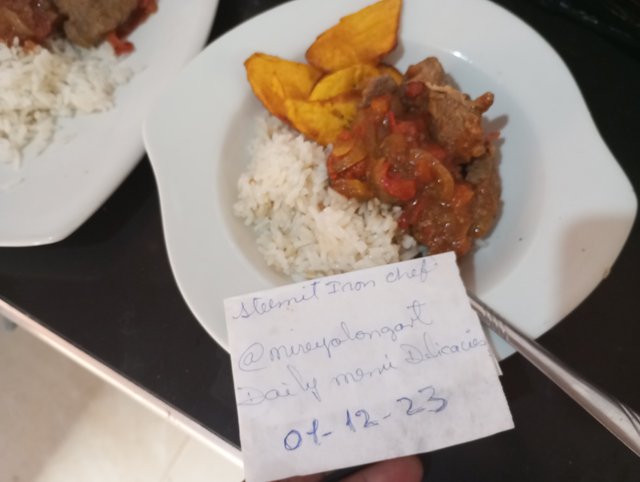 Steemit Iron chef.
@mireyalongart
Daily menú Delicacies
01-12-23